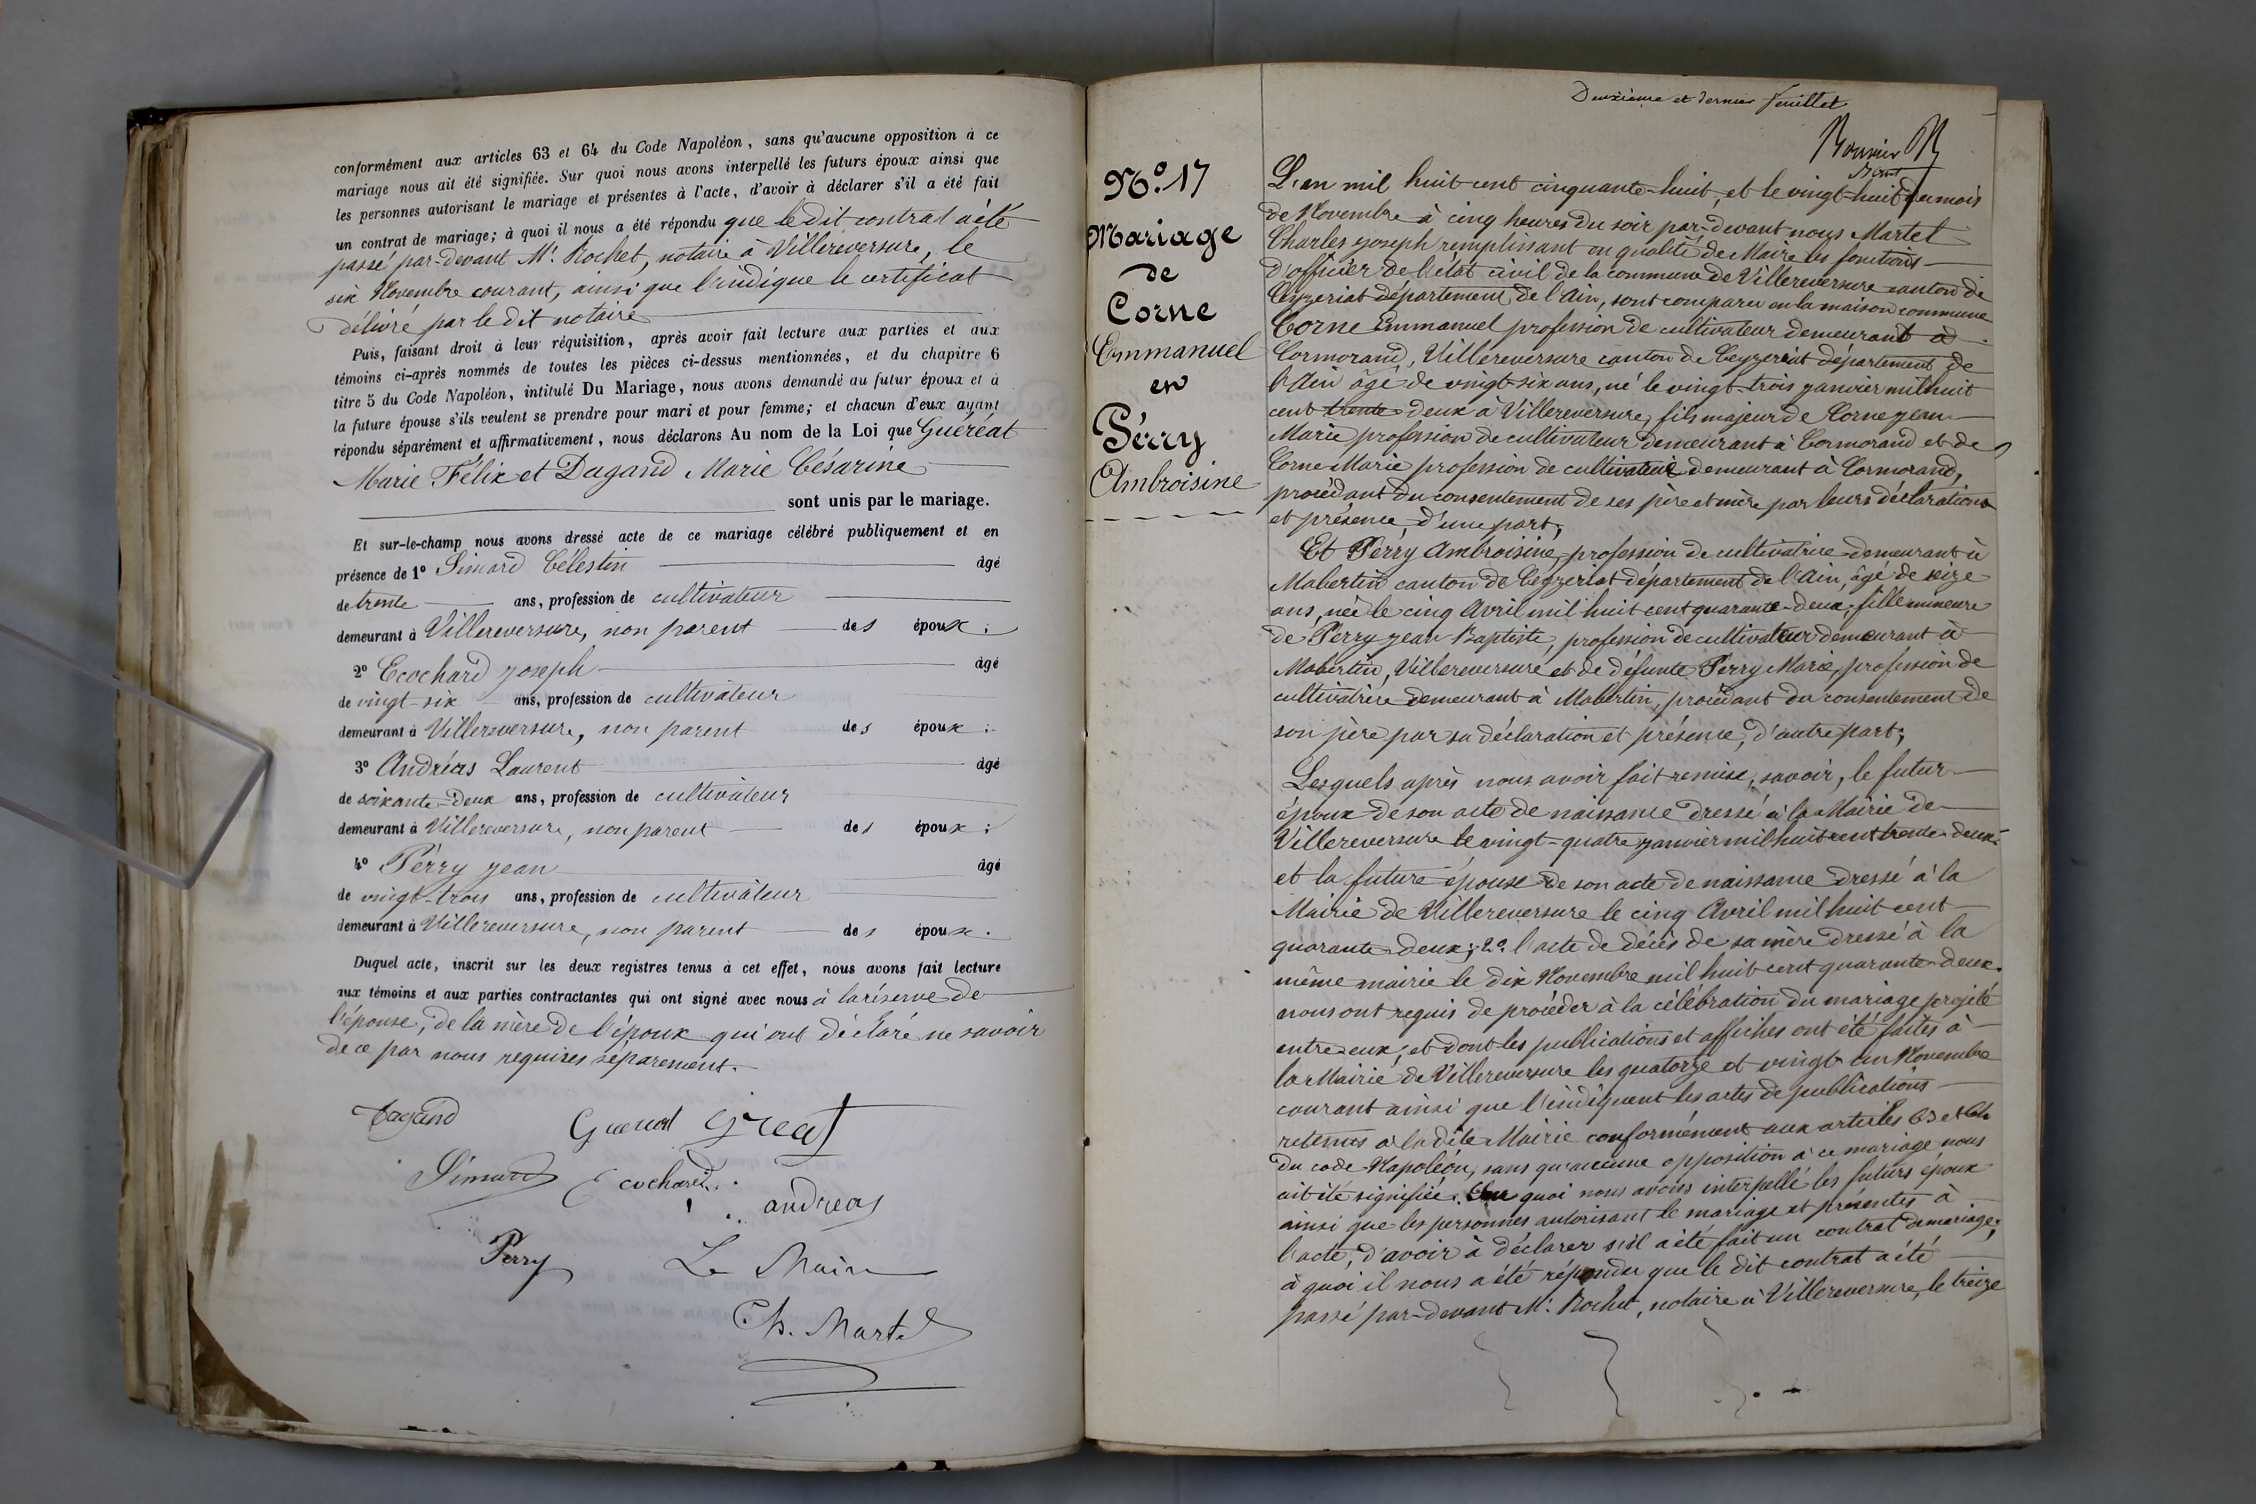 conformément aux articles 63 et 64 du Code Napoléon, sans qu'aucune opposition à ce
mariage nous ait été signifiée. Sur quoi nous avons interpellé les futurs époux ainsi que
les personnes autorisant le mariage et présentes à l'acte, d'avoir à déclarer s'il a été fait
un contrat de mariage; à quoi il nous a été répondu que le dit contrat a été
passé par-devant Mr. Rochet, notaire à Villereversure, le
six Novembre courant, ainsi que l'indique le certificat
délivré par le dit notaire
Puis, faisant droit à leur réquisition, après avoir fait lecture aux parties et aux
témoins ci-après nommés de toutes les pièces ci-dessus mentionnées, et du chapitre 6
titre 5 du Code Napoléon, intitulé Du Mariage, nous avons demandé au futur époux et à
la future épouse s'ils veulent se prendre pour mari et pour femme; et chacun d'eux ayant
répondu séparément et affirmativement, nous déclarons Au nom de la Loi que Guéréat
Marie Félix et Dagand Marie Césarine
sont unis par le mariage.
Et sur-le-champ nous avons dressé acte de ce mariage célébré publiquement et en
présence de 1° Simard Célestin âgé
de trente ans, profession de cultivateur
demeurant à Villereversure, non parent des époux;
2° Ecochard Joseph âgé
de vingt-six ans, profession de cultivateur
demeurant à Villereversure, non parent des époux;
3° Andréas Laurent âgé
de soixante-deux ans, profession de cultivateur
demeurant à Villereversure, non parent des époux;
4° Perry Jean âgé
de vingt-trois ans, profession de cultivateur
demeurant à Villereversure, non parent des époux.
Duquel acte, inscrit sur les deux registres tenus à cet effet, nous avons fait lecture
aux témoins et aux parties contractantes qui ont signé avec nous à la réserve de
l'épouse, de la mère de l'époux qui ont déclaré ne savoir
de ce par nous requises séparément.
Dagand Guereat Great
Simard Ecochard
andreas
Perry Le Maire
Ch. Martel
Deuxième et dernier feuillet
N° 17
Mariage
de
Corne
Emmanuel
en
Pérry
Ambroisine
L'an mil huit cent cinquante-huit, et le vingt-huit du mois
de Novembre à cinq heures du soir par-devant nous Martel
Charles Joseph remplissant en qualité de Maire les fonctions
d'officier de l'état civil de la commune de Villereversure canton de
Ceyzeriat département de l'Ain, sont comparu en la maison commune
Corne Emmanuel profession de cultivateur demeurant à
Cormorand, Villereversure canton de Ceyzeriat département de
l'Ain âgé de vingt-six ans, né le vingt-trois Janvier mil huit
cent trente-deux à Villereversure, fils majeur de Corne Jean
Marie profession de cultivateur demeurant à Cormorand et de
Corne Marie profession de cultivateur demeurant à Cormorand,
procédant du consentement de ses père et mère par leurs déclarations
et présence, d'une part;
Et Pérry Ambroisine, profession de cultivatrice demeurant à
Mabertin canton de Ceyzeriat département de l'Ain, âgé de seize
ans, née le cinq Avril mil huit cent quarante-deux, fille mineure
de Perry Jean Baptiste, profession de cultivateur demeurant à
Mabertin, Villereversure et de défunte Perry Marie, profession de
cultivatrice demeurant à Mabertin, procédant du consentement de
son père par sa déclaration et présence, d'autre part;
Lesquels après nous avoir fait remise, savoir, le futur
époux de son acte de naissance dressé à la Mairie de
Villereversure le vingt-quatre Janvier mil huit cent trente-deux.
et la future épouse de son acte de naissance dressé à la
Mairie de Villereversure le cinq Avril mil huit cent
quarante-deux; 2° l'acte de décès de sa mère dressé à la
même mairie le dix Novembre mil huit cent quarante-deux.
nous ont requis de procéder à la célébration du mariage projeté
entre eux, et dont les publications et affiches ont été faites à
la Mairie de Villereversure les quatorze et vingt-un Novembre
courant ainsi que l'indiquent les actes de publications
retenus à la dite Mairie conformément aux articles 63 et 64
du code Napoléon, sans qu'aucune opposition à ce mariage nous
ait été signifiée. Sur quoi nous avons interpellé les futurs époux
ainsi que les personnes autorisant le mariage et présentes à
l'acte, d'avoir à déclarer s'il a été fait un contrat de mariage;
à quoi il nous a été répondu que le dit contrat a été
passé par-devant Mr. Rochet, notaire à Villereversure, le treize